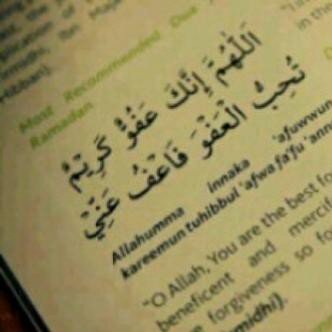 lication of
in the
irmidhi, Ibn Maj
Hibban).
Most Recommended Due
Ramadan
اَللّٰهُمَّ إِنَّكَ عَفُوٌّ كَرِيْمٌ
تُحِبُّ الْعَفْوَ فَاعْفُ عَنِّيْ
Allahumma innaka 'afuwwun
kareemun tuhibbul 'afwa fa'fu 'ann
"O Allah, You are the best fo
beneficent and mercif
forgiveness so fo
midhi).